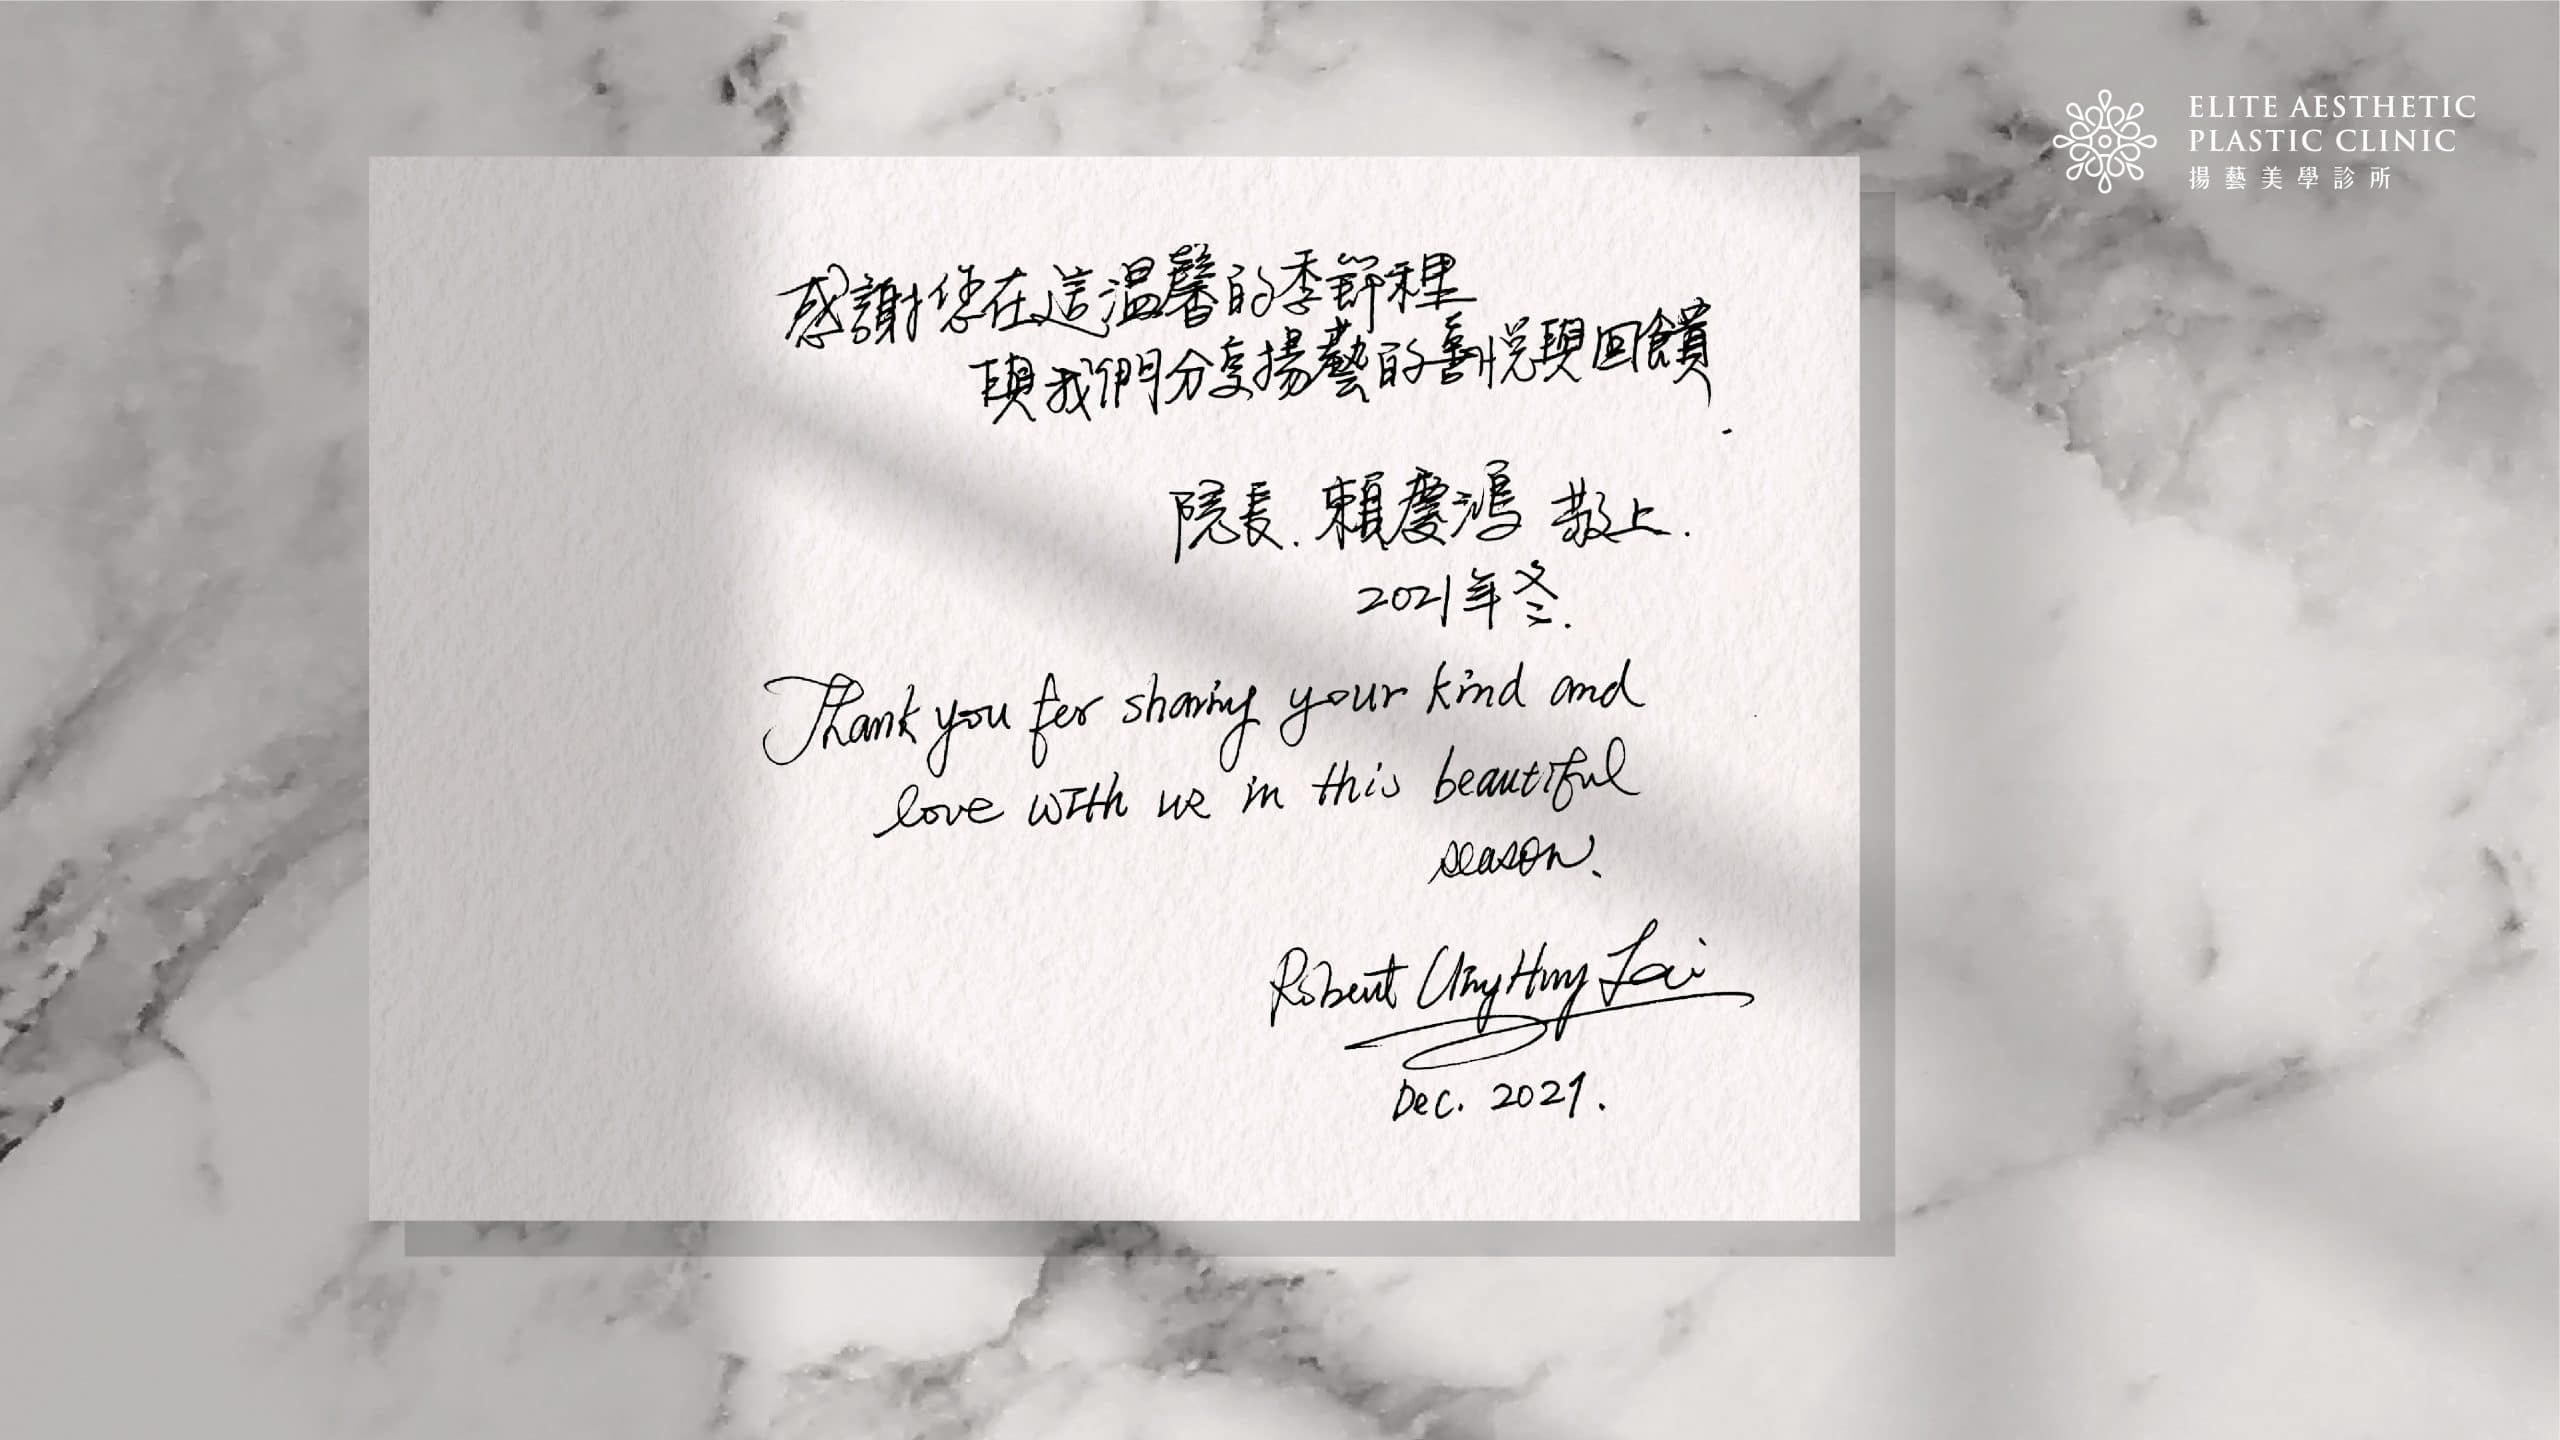 ELITE AESTHETIC
PLASTIC CLINIC
揚藝美學診所
感謝您在這溫馨的季節裡
與我們分享揚藝的喜悅與回饋.
院長.賴慶鴻 敬上.
2021年冬.
Thank you for sharing your kind and
love with us in this beautiful
season.
Robert Qing Hung Lai
Dec. 2021.